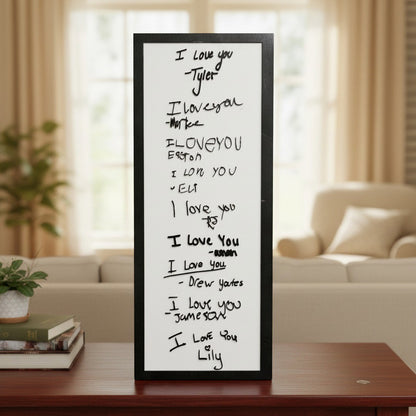 I love you
-Tyler
I love you
I LOVE YOU
EASTON
I love you
- ELI
I love you
I Love You
I Love You
- Drew Yates
I Love you
-JAMESON
I Love You
Lily